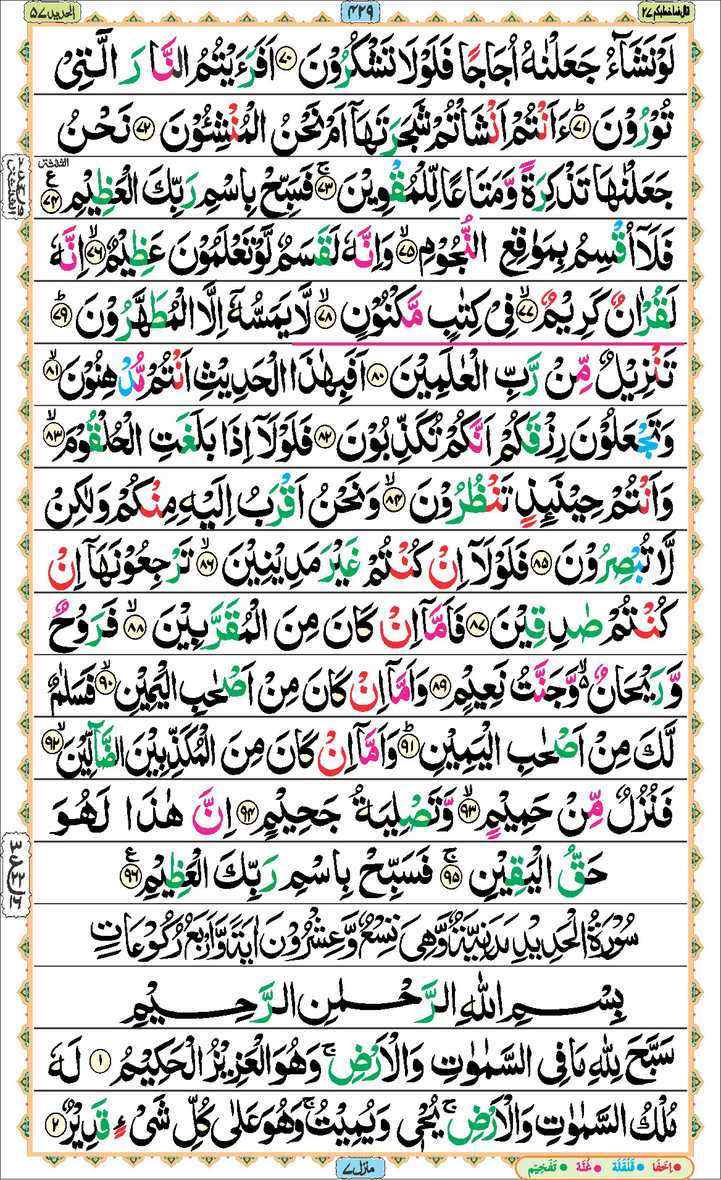 قال فما خطبكم ٢٧
٤٢٩
الحديد ٥٧
لَوْنَشَآءُ جَعَلْنٰهُ اُجَاجًا فَلَوْلَا تَشْكُرُوْنَ ۝٧٠ اَفَرَءَيْتُمُ النَّارَ الَّتِيْ
تُوْرُوْنَ ۝٧١ؕ ءَاَنْتُمْ اَنْشَاْتُمْ شَجَرَتَهَاۤ اَمْ نَحْنُ الْمُنْشِئُوْنَ ۝٧٢ نَحْنُ
جَعَلْنٰهَا تَذْكِرَةً وَّمَتَاعًا لِّلْمُقْوِيْنَ ۝٧٣ۚ فَسَبِّحْ بِاسْمِ رَبِّكَ الْعَظِيْمِ ۝٧٤ ع الثلثة
فَلَاۤ اُقْسِمُ بِمَوٰقِعِ النُّجُوْمِ ۝٧٥ۙ وَاِنَّهٗ لَقَسَمٌ لَّوْتَعْلَمُوْنَ عَظِيْمٌ ۝٧٦ۙ اِنَّهٗ
لَقُرْاٰنٌ كَرِيْمٌ ۝٧٧ۙ فِيْ كِتٰبٍ مَّكْنُوْنٍ ۝٧٨ۙ لَّا يَمَسُّهٗۤ اِلَّا الْمُطَهَّرُوْنَ ۝٧٩ؕ
تَنْزِيْلٌ مِّنْ رَّبِّ الْعٰلَمِيْنَ ۝٨٠ اَفَبِهٰذَا الْحَدِيْثِ اَنْتُمْ مُّدْهِنُوْنَ ۝٨١ۙ
وَتَجْعَلُوْنَ رِزْقَكُمْ اَنَّكُمْ تُكَذِّبُوْنَ ۝٨٢ فَلَوْلَاۤ اِذَا بَلَغَتِ الْحُلْقُوْمَ ۝٨٣ۙ
وَاَنْتُمْ حِيْنَئِذٍ تَنْظُرُوْنَ ۝٨٤ۙ وَنَحْنُ اَقْرَبُ اِلَيْهِ مِنْكُمْ وَلٰكِنْ
لَّا تُبْصِرُوْنَ ۝٨٥ فَلَوْلَاۤ اِنْ كُنْتُمْ غَيْرَ مَدِيْنِيْنَ ۝٨٦ۙ تَرْجِعُوْنَهَاۤ اِنْ
كُنْتُمْ صٰدِقِيْنَ ۝٨٧ فَاَمَّاۤ اِنْ كَانَ مِنَ الْمُقَرَّبِيْنَ ۝٨٨ۙ فَرَوْحٌ
وَّرَيْحَانٌ ۙ وَّجَنَّتُ نَعِيْمٍ ۝٨٩ وَاَمَّاۤ اِنْ كَانَ مِنْ اَصْحٰبِ الْيَمِيْنِ ۝٩٠ۙ فَسَلٰمٌ
لَّكَ مِنْ اَصْحٰبِ الْيَمِيْنِ ۝٩١ؕ وَاَمَّاۤ اِنْ كَانَ مِنَ الْمُكَذِّبِيْنَ الضَّآلِّيْنَ ۝٩٢ۙ
فَنُزُلٌ مِّنْ حَمِيْمٍ ۝٩٣ۙ وَّتَصْلِيَةُ جَحِيْمٍ ۝٩٤ اِنَّ هٰذَا لَهُوَ
حَقُّ الْيَقِيْنِ ۝٩٥ۚ فَسَبِّحْ بِاسْمِ رَبِّكَ الْعَظِيْمِ ۝٩٦ ع
سُوْرَةُ الْحَدِيْدِ مَدَنِيَّةٌ وَّهِيَ تِسْعٌ وَّعِشْرُوْنَ اٰيَةً وَّاَرْبَعُ رُكُوْعَاتٍ
بِسْمِ اللّٰهِ الرَّحْمٰنِ الرَّحِيْمِ
سَبَّحَ لِلّٰهِ مَا فِي السَّمٰوٰتِ وَالْاَرْضِ ۚ وَهُوَ الْعَزِيْزُ الْحَكِيْمُ ۝١ لَهٗ
مُلْكُ السَّمٰوٰتِ وَالْاَرْضِ ۚ يُحْيٖ وَيُمِيْتُ ۚ وَهُوَ عَلٰى كُلِّ شَيْءٍ قَدِيْرٌ ۝٢
منزل ٧
اِخفا • قلقلة • غُنّة • تفخيم •